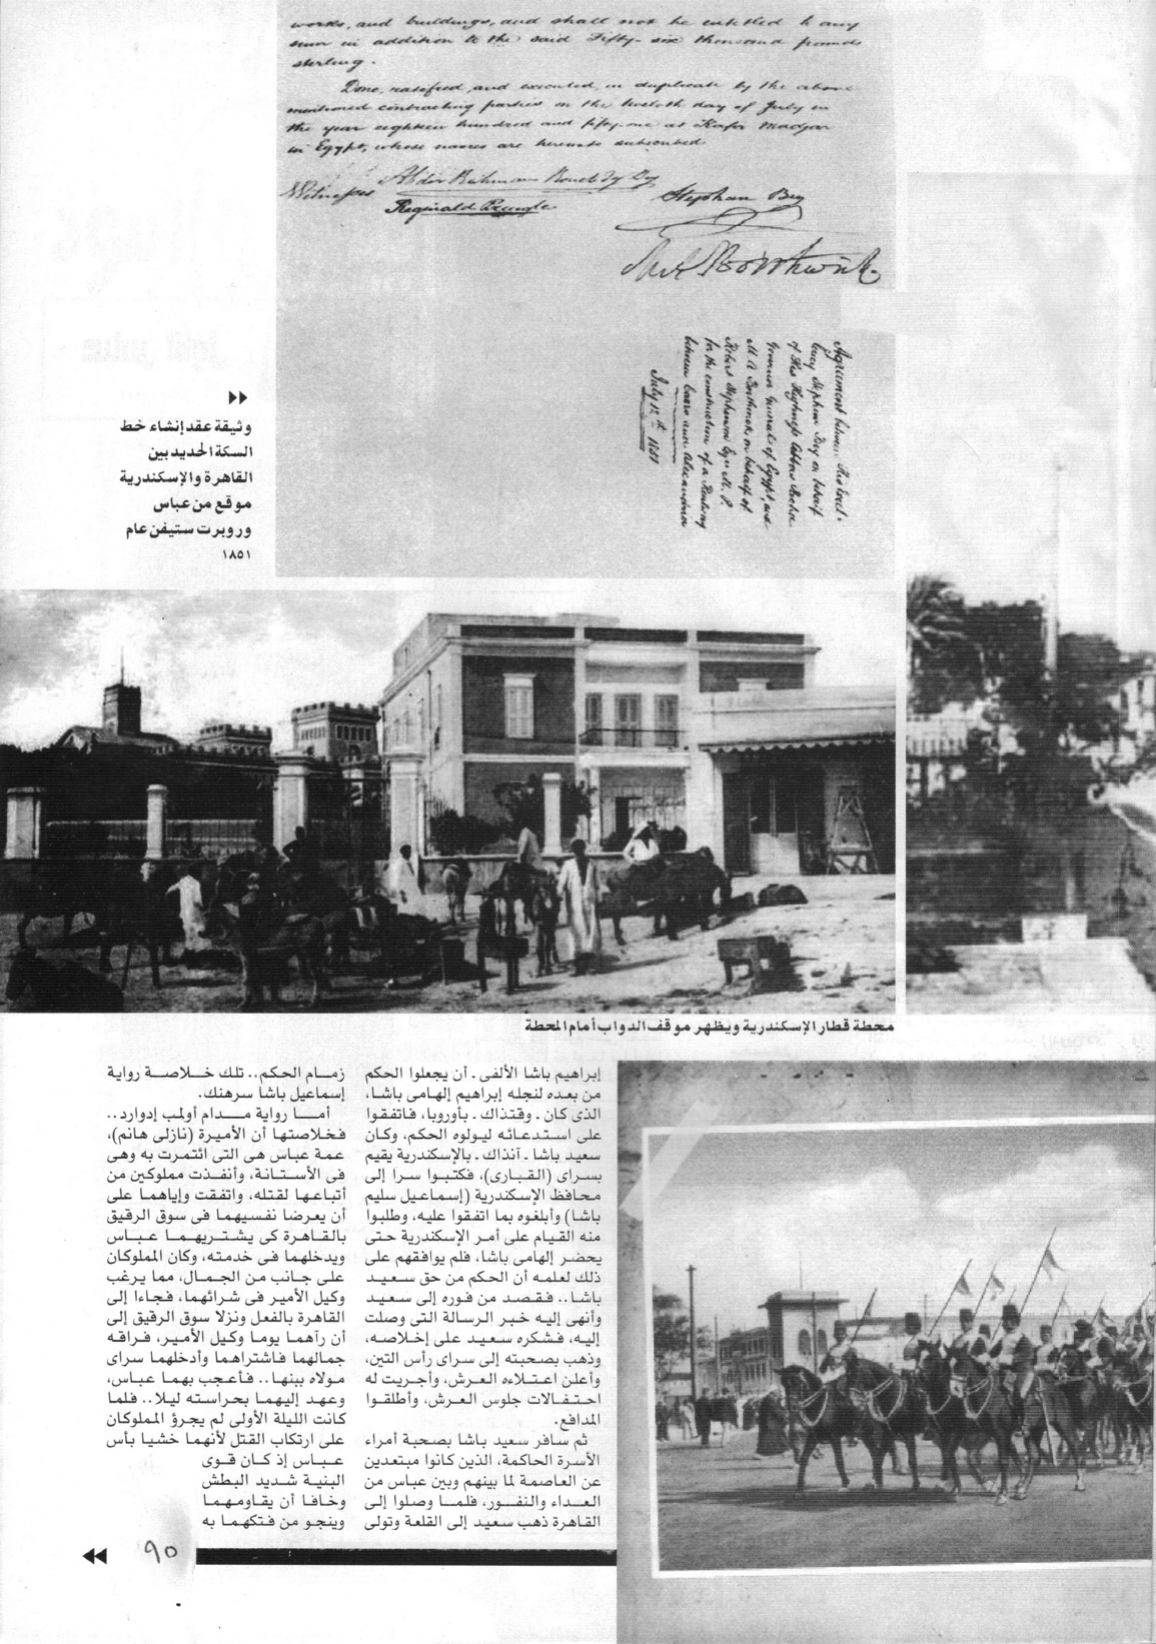 works, and buildings, and shall not be entitled to any
sum in addition to the said Fifty-six thousand pounds
sterling.
Done, ratified, and executed, in duplicate by the above
mentioned contracting parties on the twelfth day of July in
the year eighteen hundred and fifty-one at Kafr Madjar
in Egypt, whose names are hereunto subscribed
Witnesses
Stephan Bey
Agreement between His Excel-
lency Stephan Bey on behalf
of His Highness Abbas Pacha
Governor General of Egypt, and
M. A. Borthwick on behalf of
Robert Stephenson Esqr M. P.
for the construction of a Railway
between Cairo and Alexandria
July 12th 1851
وثيقة عقد إنشاء خط
السكة الحديد بين
القاهرة والإسكندرية
موقع من عباس
وروبرت ستيفن عام
١٨٥١
محطة قطار الإسكندرية ويظهر موقف الدواب أمام المحطة
إبراهيم باشا الألفى . أن يجعلوا الحكم
من بعده لنجله إبراهيم إلهامى باشا،
الذى كان . وقتذاك . بأوروبا، فاتفقوا
على استدعائه ليولوه الحكم، وكان
سعيد باشا . آنذاك . بالإسكندرية يقيم
بسراى (القبارى)، فكتبوا سرا إلى
محافظ الإسكندرية (إسماعيل سليم
باشا) وأبلغوه بما اتفقوا عليه، وطلبوا
منه القيام على أمر الإسكندرية حتى
يحضر إلهامى باشا، فلم يوافقهم على
ذلك لعلمه أن الحكم من حق سعيد
باشا.. فقصد من فوره إلى سعيد
وأنهى إليه خبر الرسالة التى وصلت
إليه، فشكره سعيد على إخلاصه،
وذهب بصحبته إلى سراى رأس التين،
وأعلن اعتلاءه العرش، وأجريت له
احتفالات جلوس العرش، وأطلقوا
المدافع.
ثم سافر سعيد باشا بصحبة أمراء
الأسرة الحاكمة، الذين كانوا مبتعدين
عن العاصمة لما بينهم وبين عباس من
العداء والنفور، فلما وصلوا إلى
القاهرة ذهب سعيد إلى القلعة وتولى
زمام الحكم.. تلك خلاصة رواية
إسماعيل باشا سرهنك.
أما رواية مدام أولمب إدوارد..
فخلاصتها أن الأميرة (نازلى هانم)،
عمة عباس هى التى ائتمرت به وهى
فى الأستانة، وأنفذت مملوكين من
أتباعها لقتله، واتفقت وإياهما على
أن يعرضا نفسيهما فى سوق الرقيق
بالقاهرة كى يشتريهما عباس
ويدخلهما فى خدمته، وكان المملوكان
على جانب من الجمال، مما يرغب
وكيل الأمير فى شرائهما، فجاءا إلى
القاهرة بالفعل ونزلا سوق الرقيق إلى
أن رآهما يوما وكيل الأمير، فراقه
جمالهما فاشتراهما وأدخلهما سراى
مولاه ببنها.. فأعجب بهما عباس،
وعهد إليهما بحراسته ليلا.. فلما
كانت الليلة الأولى لم يجرؤ المملوكان
على ارتكاب القتل لأنهما خشيا بأس
عباس إذ كان قوى
البنية شديد البطش
وخافا أن يقاومهما
وينجو من فتكهما به
٩٥